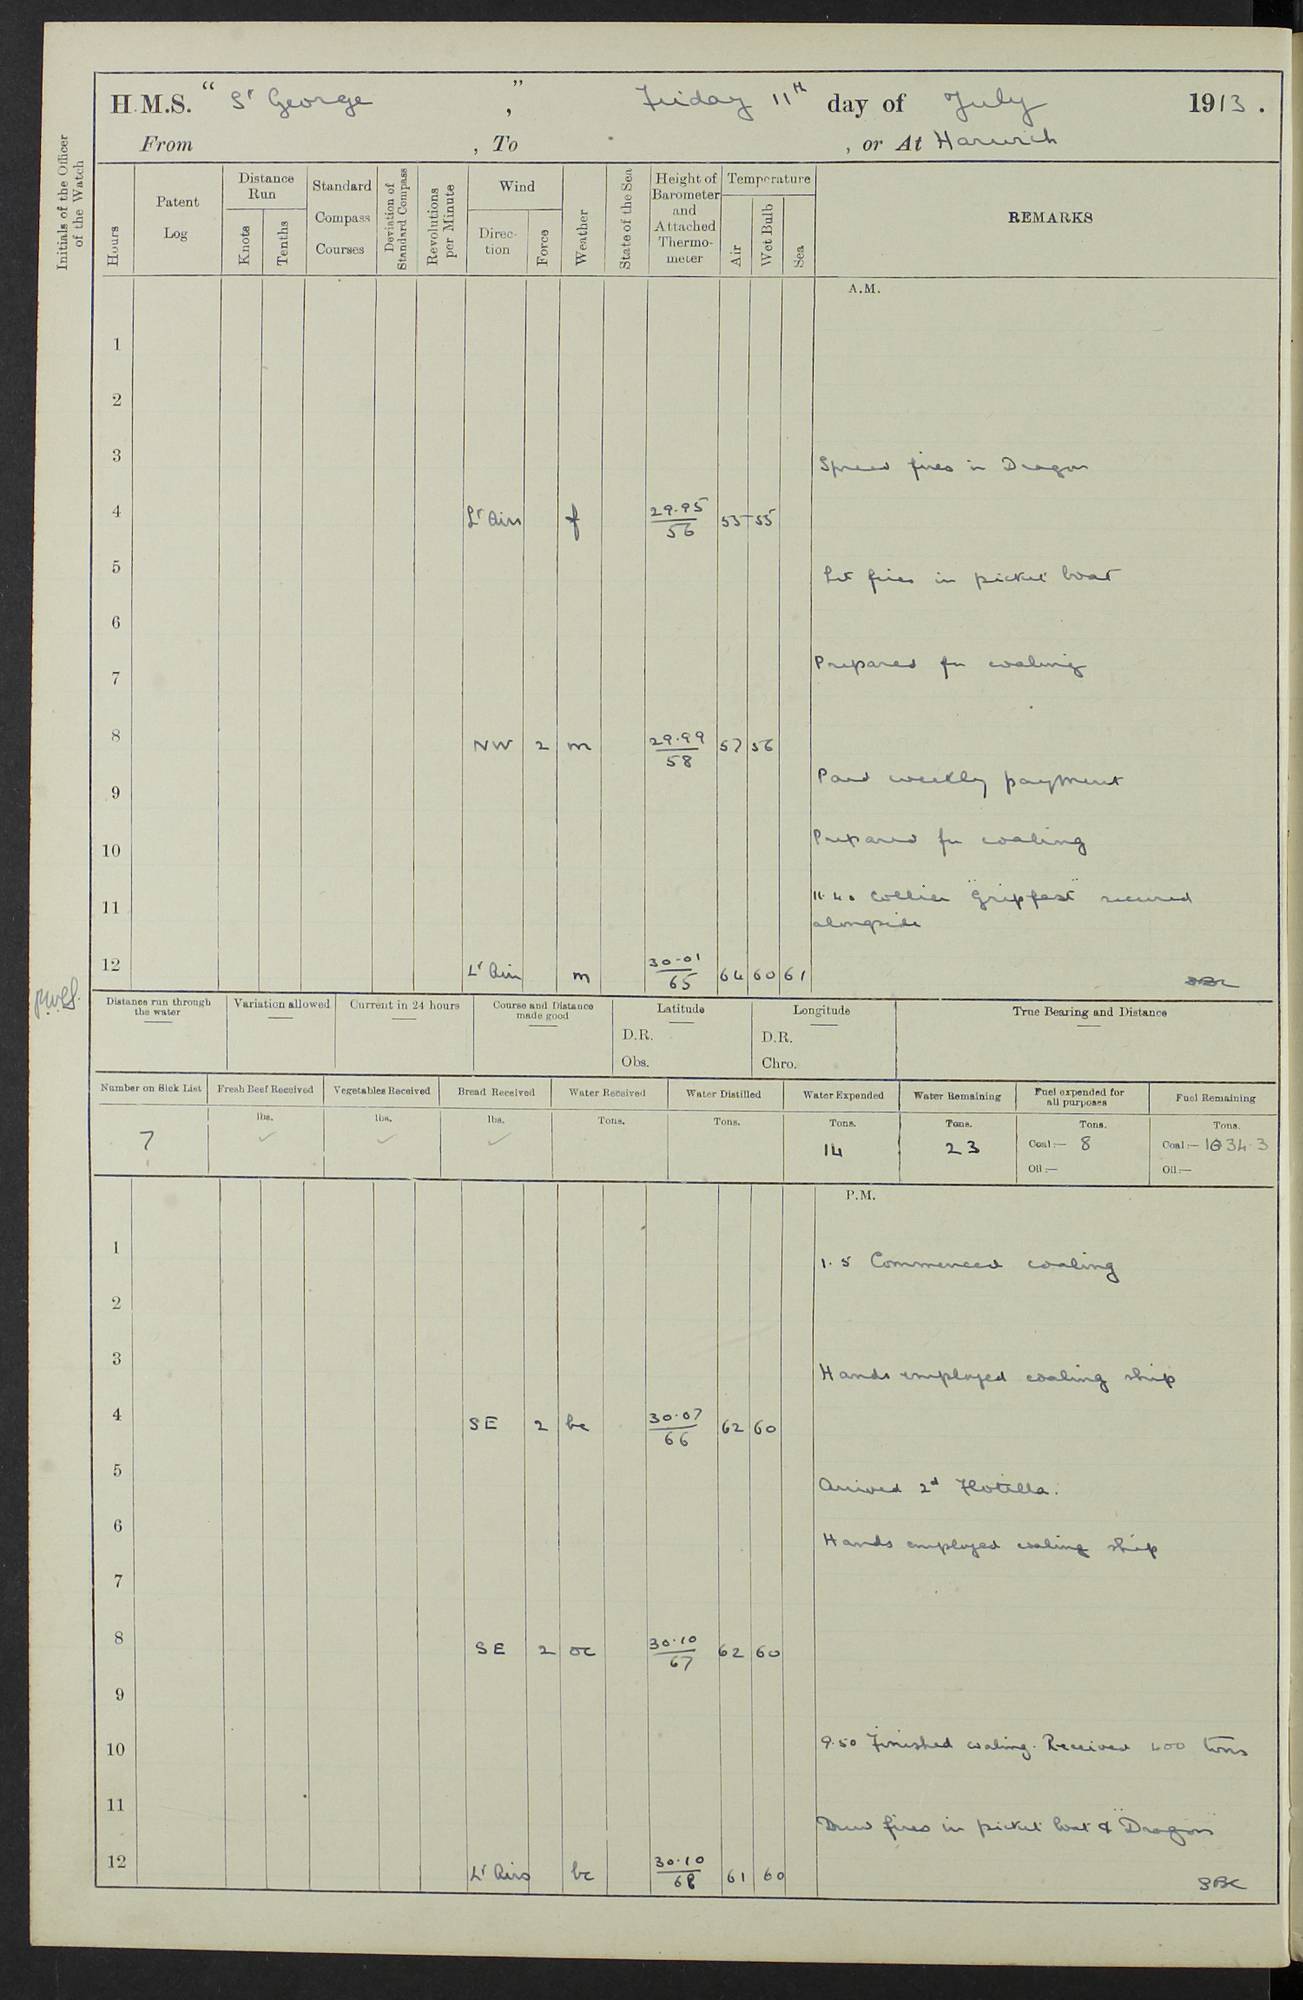 H.M.S. “ St George ” , Friday 11th day of July 1913 .
From , To , or At Harwich
Initials of the Officer of the Watch
Hours
Patent Log
Distance Run
Knots
Tenths
Standard Compass Courses
Deviation of Standard Compass
Revolutions per Minute
Wind
Direction
Force
Weather
State of the Sea
Height of Barometer and Attached Thermometer
Temperature
Air
Wet Bulb
Sea
REMARKS
A.M.
1
2
3
Spread fires in Dragon
4 Lt Airs f 29.95/56 55 55
5
Lit fires in picket boat
6
7
Prepared for coaling
8 NW 2 m 29.99/58 57 56
9
Paid weekly payment
10
Prepared for coaling
11
11.40 Collier "Gripfast" secured
alongside
12 Lt Airs m 30.01/65 64 60 61
Distance run through the water
Variation allowed
Current in 24 hours
Course and Distance made good
Latitude
D.R.
Obs.
Longitude
D.R.
Chro.
True Bearing and Distance
Number on Sick List
Fresh Beef Received
Vegetables Received
Bread Received
Water Received
Water Distilled
Water Expended
Water Remaining
Fuel expended for all purposes
Fuel Remaining
7
lbs. ✓
lbs. ✓
lbs. ✓
Tons.
Tons.
Tons. 14
Tons. 23
Tons.
Coal:— 8
Oil:—
Tons.
Coal:— 1034.3
Oil:—
P.M.
1
1.5 Commenced coaling
2
3
Hands employed coaling ship
4 SE 2 bc 30.07/66 62 60
5
Arrived 2d Flotilla.
6
Hands employed coaling ship
7
8 SE 2 oc 30.10/67 62 60
9
10
9.50 Finished coaling. Received 400 tons
11
Drew fires in picket boat & "Dragon"
12 Lt Airs bc 30.10/68 61 60